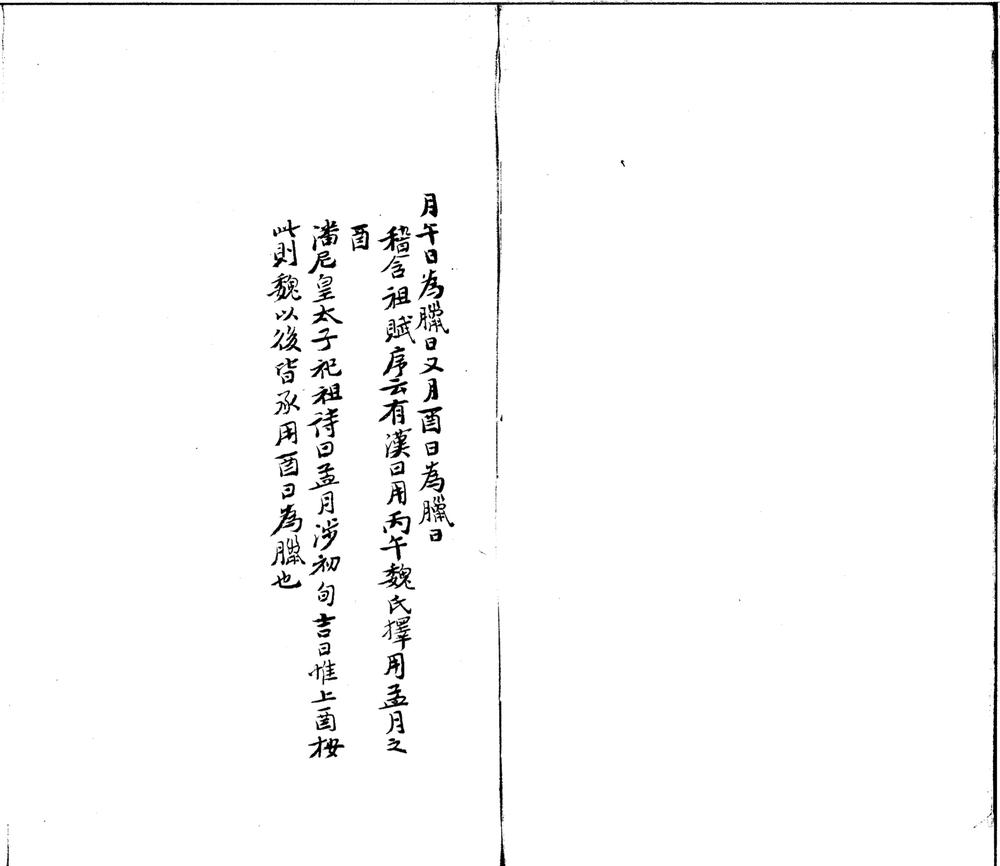 月午日為臘日又月酉日為臘日
稽含祖賦序云有漢日用丙午魏氏擇用孟月之
酉
潘尼皇太子祀祖待曰孟月涉初旬吉日惟上酉桉
此則魏以後皆承用酉日為臘也